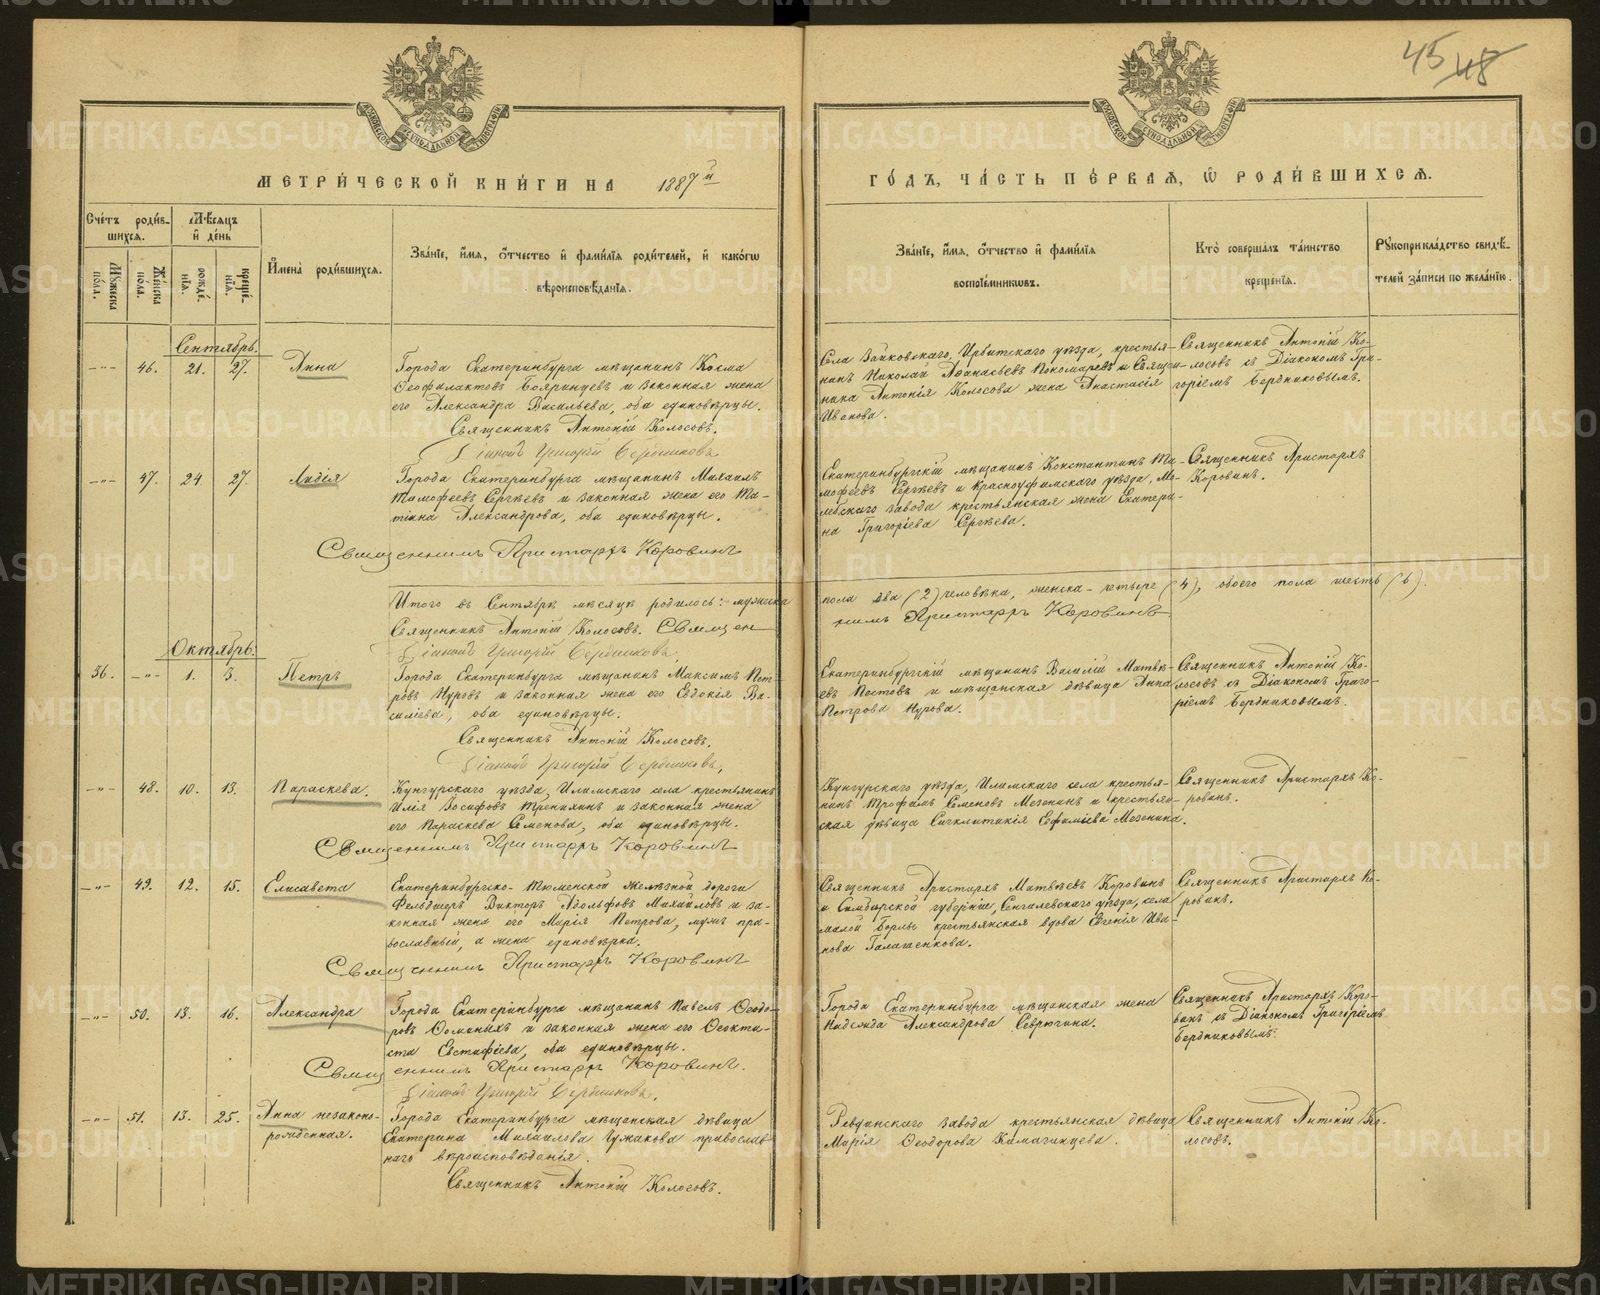 45 48
МОСКОВСКОЙ СѴНОДАЛЬНОЙ ТИПОГРАФІИ
МОСКОВСКОЙ СѴНОДАЛЬНОЙ ТИПОГРАФІИ
МЕТРИ́ЧЕСКОЙ КНИ́ГИ НА 1887й
ГО́ДЪ, ЧА́СТЬ ПЕ́РВАѦ, Ѡ РОДИ́ВШИХСѦ.
Сче́тъ роди́в-
шихсѧ.
Мѣ́сѧцъ
и҆ де́нь
Мꙋ́жеска
по́ла.
Же́нска
по́ла.
рожде́-
нїѧ.
креще́-
нїѧ.
И҆мена̀ роди́вшихсѧ.
Зва́нїе, и҆́мѧ, ѻ҆́тчество и҆ фами́лїѧ роди́телей, и҆ како́гѡ
вѣроисповѣ́данїѧ.
Зва́нїе, и҆́мѧ, ѻ҆́тчество и҆ фами́лїѧ
воспрїе́мникѡвъ.
Кто̀ соверша́лъ та́инство
креще́нїѧ.
Рꙋкоприкла́дство свидѣ́-
телей за́писи по жела́нїю.
Сентябрь.
-"- 46. 21. 27. Анна
Города Екатеринбурга мѣщанинъ Косма
Ѳеофилактовъ Бояринцевъ и законная жена
его Александра Васильева, оба единовѣрцы.
Священникъ Антоній Колосовъ.
Діаконъ Григорій Бердниковъ
Села Зайковскаго, Ирбитскаго уѣзда, крестья-
нинъ Николай Аѳанасьевъ Пономаревъ и Священ-
ника Антонія Колосова жена Анастасія
Иванова.
Священникъ Антоній Ко-
лосовъ съ Діакономъ Гри-
горіемъ Бердниковымъ.
-"- 47. 24 27. Лидія
Города Екатеринбурга мѣщанинъ Михаилъ
Тимофеевъ Сергѣевъ и законная жена его Та-
тіана Александрова, оба единовѣрцы.
Священникъ Аристархъ Коровинъ
Екатеринбургскій мѣщанинъ Константинъ Ти-
мофеевъ Сергѣевъ и Красноуфимскаго уѣзда, Мо-
лебскаго завода крестьянская жена Екатери-
на Григоріева Сергѣева.
Священникъ Аристархъ
Коровинъ.
Итого въ Сентябрѣ мѣсяцѣ родилось: мужеска
пола два (2) человѣка, женска - четыре (4), обоего пола шесть (6).
Священникъ Антоній Колосовъ. Священ
никъ Аристархъ Коровинъ
Діаконъ Григорій Бердниковъ.
Октябрь.
36. -"- 1. 3. Петръ
Города Екатеринбурга мѣщанинъ Максимъ Пет-
ровъ Нуровъ и законная жена его Евдокія Ва-
силіева, оба единовѣрцы.
Священникъ Антоній Колосовъ.
Діаконъ Григорій Бердниковъ.
Екатеринбургскій мѣщанинъ Василій Матвѣ-
евъ Постовъ и мѣщанская дѣвица Анна
Петрова Нурова.
Священникъ Антоній Ко-
лосовъ съ Діакономъ Григо-
ріемъ Бердниковымъ.
-"- 48. 10. 13. Параскева.
Кунгурскаго уѣзда, Илимскаго села крестьянинъ
Илія Іосифовъ Тренихинъ и законная жена
его Параскева Семенова, оба единовѣрцы.
Священникъ Аристархъ Коровинъ
Кунгурскаго уѣзда, Илимскаго села крестья-
нинъ Трофимъ Семеновъ Мезенинъ и крестьян-
ская дѣвица Сигклитикія Ефиміева Мезенина.
Священникъ Аристархъ Ко-
ровинъ.
-"- 49. 12. 15. Елисавета
Екатеринбургско-Тюменской желѣзной дороги
Фельдшеръ Викторъ Адольфовъ Михайловъ и за-
конная жена его Марія Петрова, мужъ пра-
вославный, а жена единовѣрка.
Священникъ Аристархъ Коровинъ
Священникъ Аристархъ Матвѣевъ Коровинъ
и Симбирской губерніи, Сенгилеевскаго уѣзда, села
малой Борлы крестьянская вдова Евгенія Ива-
нова Галашенкова.
Священникъ Аристархъ Ко-
ровинъ.
-"- 50. 13. 16. Александра
Города Екатеринбурга мѣщанинъ Павелъ Ѳеодо-
ровъ Ѳоминыхъ и законная жена его Ѳеокти-
ста Евстафіева, оба единовѣрцы.
Священникъ Аристархъ Коровинъ.
Діаконъ Григорій Бердниковъ.
Города Екатеринбурга мѣщанская жена
Надежда Александрова Севрюгина.
Священникъ Аристархъ Коро-
винъ съ Діакономъ Григоріемъ
Бердниковымъ.
-"- 51. 13. 25. Анна незаконо-
рожденная.
Города Екатеринбурга мѣщанская дѣвица
Екатерина Михаилова Чужакова православ
наго вѣроисповѣданія.
Священникъ Антоній Колосовъ.
Ревдинскаго завода крестьянская дѣвица
Марія Ѳеодорова Камаганцева.
Священникъ Антоній Ко-
лосовъ.
METRIKI.GASO-URAL.RU